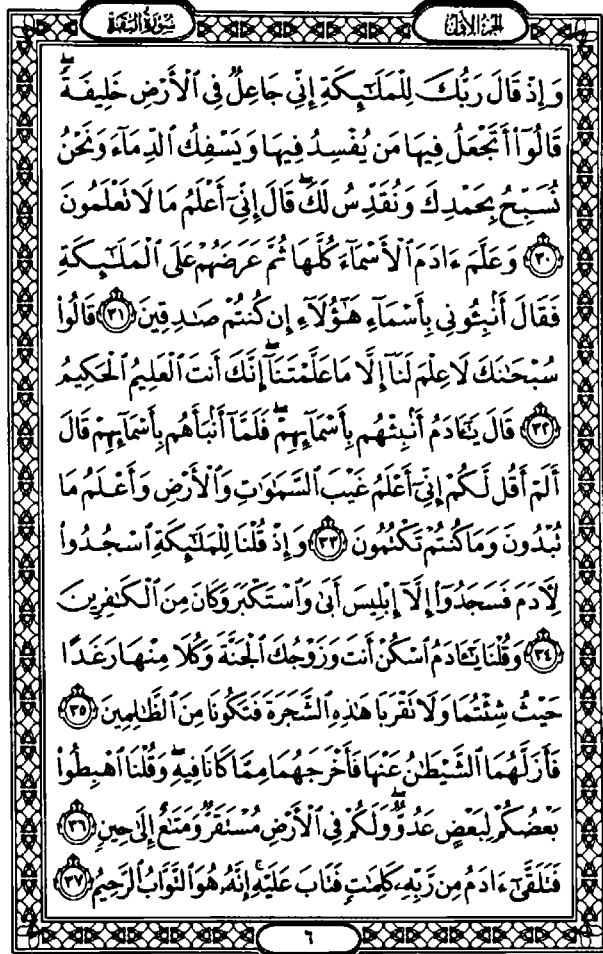 سُورَةُ البَقَرَةِ الجُزْءُ الأَوَّلُ
وَإِذْ قَالَ رَبُّكَ لِلْمَلَـٰٓئِكَةِ إِنِّى جَاعِلٌ فِى ٱلْأَرْضِ خَلِيفَةًۖ
قَالُوٓا۟ أَتَجْعَلُ فِيهَا مَن يُفْسِدُ فِيهَا وَيَسْفِكُ ٱلدِّمَآءَ وَنَحْنُ
نُسَبِّحُ بِحَمْدِكَ وَنُقَدِّسُ لَكَۖ قَالَ إِنِّىٓ أَعْلَمُ مَا لَا تَعْلَمُونَ
٣٠ وَعَلَّمَ ءَادَمَ ٱلْأَسْمَآءَ كُلَّهَا ثُمَّ عَرَضَهُمْ عَلَى ٱلْمَلَـٰٓئِكَةِ
فَقَالَ أَنۢبِـُٔونِى بِأَسْمَآءِ هَـٰٓؤُلَآءِ إِن كُنتُمْ صَـٰدِقِينَ ٣١ قَالُوا۟
سُبْحَـٰنَكَ لَا عِلْمَ لَنَآ إِلَّا مَا عَلَّمْتَنَآۖ إِنَّكَ أَنتَ ٱلْعَلِيمُ ٱلْحَكِيمُ
٣٢ قَالَ يَـٰٓـَٔادَمُ أَنۢبِئْهُم بِأَسْمَآئِهِمْۖ فَلَمَّآ أَنۢبَأَهُم بِأَسْمَآئِهِمْ قَالَ
أَلَمْ أَقُل لَّكُمْ إِنِّىٓ أَعْلَمُ غَيْبَ ٱلسَّمَـٰوَٰتِ وَٱلْأَرْضِ وَأَعْلَمُ مَا
تُبْدُونَ وَمَا كُنتُمْ تَكْتُمُونَ ٣٣ وَإِذْ قُلْنَا لِلْمَلَـٰٓئِكَةِ ٱسْجُدُوا۟
لِـَٔادَمَ فَسَجَدُوٓا۟ إِلَّآ إِبْلِيسَ أَبَىٰ وَٱسْتَكْبَرَ وَكَانَ مِنَ ٱلْكَـٰفِرِينَ
٣٤ وَقُلْنَا يَـٰٓـَٔادَمُ ٱسْكُنْ أَنتَ وَزَوْجُكَ ٱلْجَنَّةَ وَكُلَا مِنْهَا رَغَدًا
حَيْثُ شِئْتُمَا وَلَا تَقْرَبَا هَـٰذِهِ ٱلشَّجَرَةَ فَتَكُونَا مِنَ ٱلظَّـٰلِمِينَ ٣٥
فَأَزَلَّهُمَا ٱلشَّيْطَـٰنُ عَنْهَا فَأَخْرَجَهُمَا مِمَّا كَانَا فِيهِۖ وَقُلْنَا ٱهْبِطُوا۟
بَعْضُكُمْ لِبَعْضٍ عَدُوٌّۖ وَلَكُمْ فِى ٱلْأَرْضِ مُسْتَقَرٌّ وَمَتَـٰعٌ إِلَىٰ حِينٍ ٣٦
فَتَلَقَّىٰٓ ءَادَمُ مِن رَّبِّهِۦ كَلِمَـٰتٍ فَتَابَ عَلَيْهِۚ إِنَّهُۥ هُوَ ٱلتَّوَّابُ ٱلرَّحِيمُ ٣٧
٦